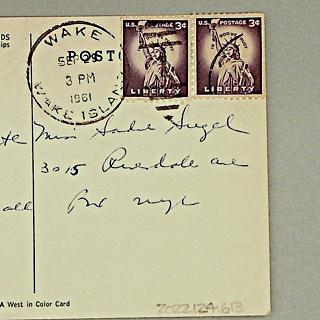 DS
ips
WAKE
SEP
3 PM
1961
WAKE ISLAND
POST
U.S. POSTAGE 3¢
IN GOD WE TRUST
LIBERTY
U.S. POSTAGE 3¢
LIBERTY
te
Miss Sadie Siegel
3015 Riverdale ave
all
Bx NYC
A West in Color Card
2022.124.613